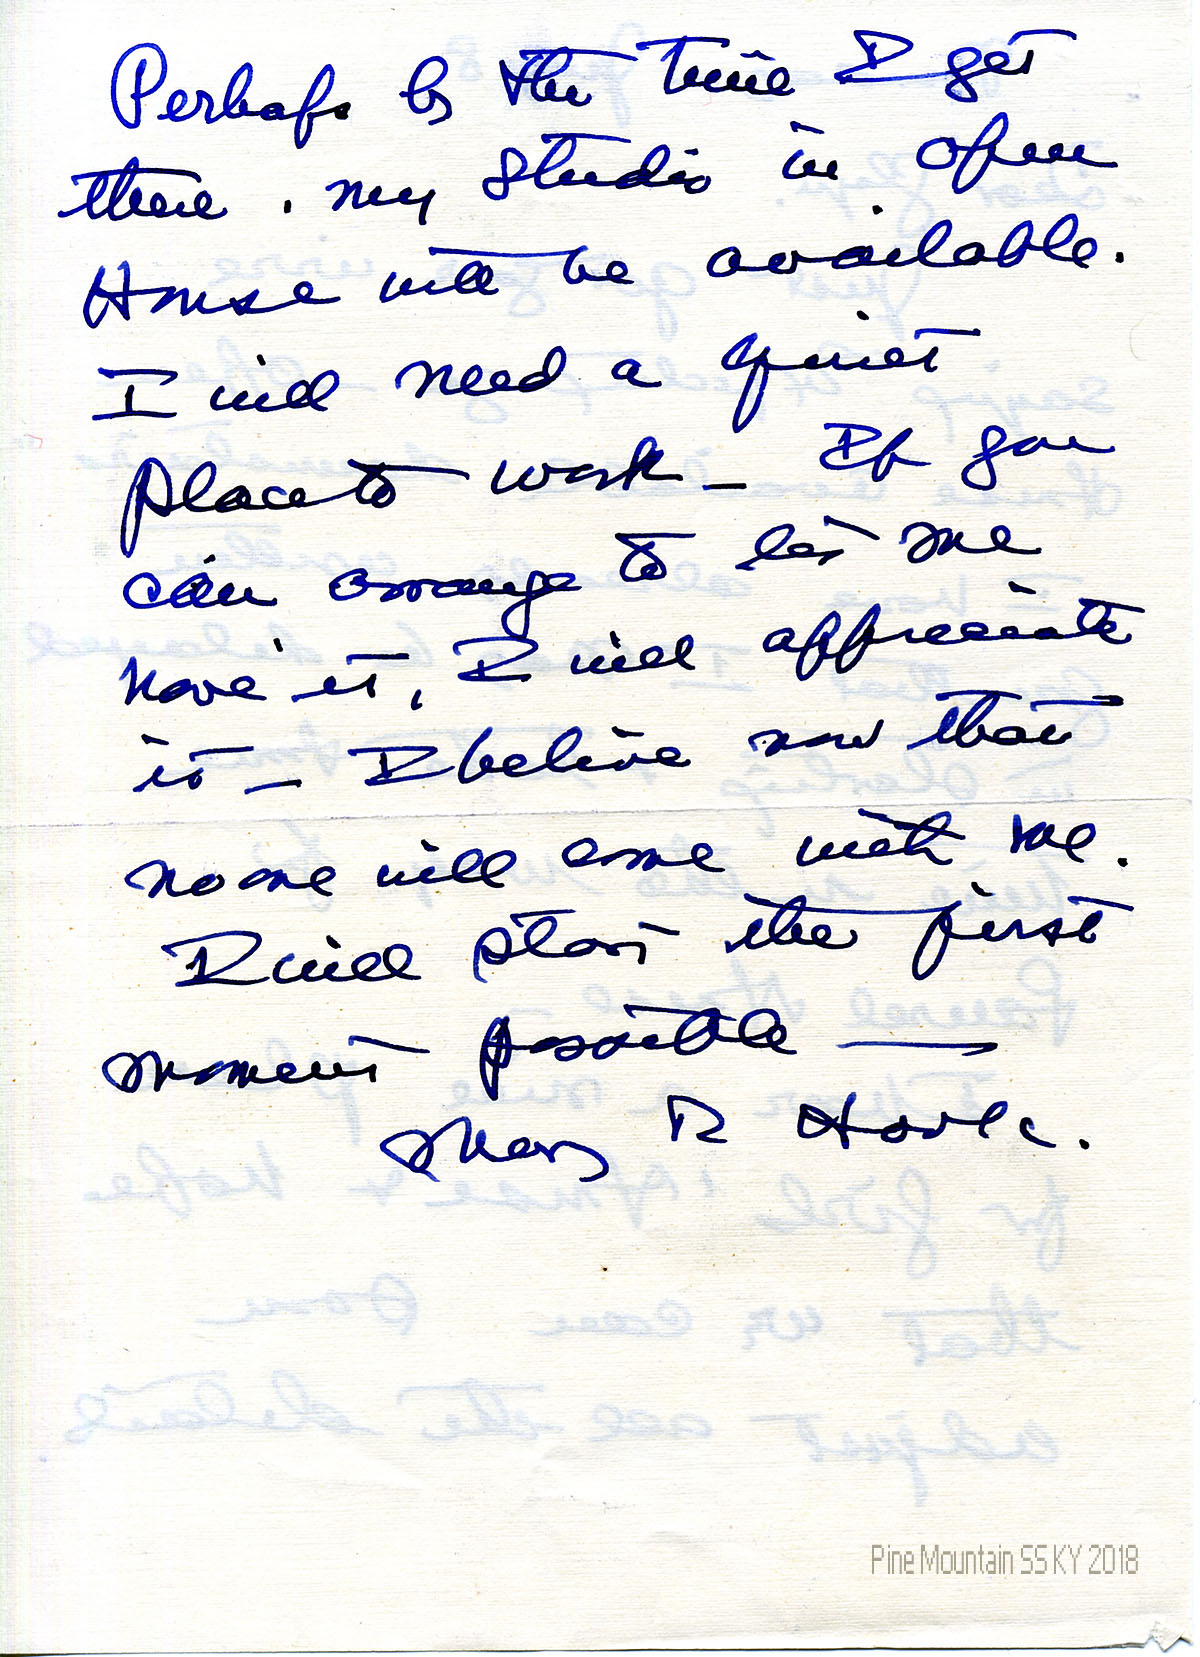 Perhaps by the time I get
there, my studio in open
House will be available.
I will need a quiet
place to work – If you
can arrange to let me
have it, I will appreciate
it – I believe now that
no one will come with me.
I will start the first
moment possible —
Mary R
Pine Mountain SS KY 2018